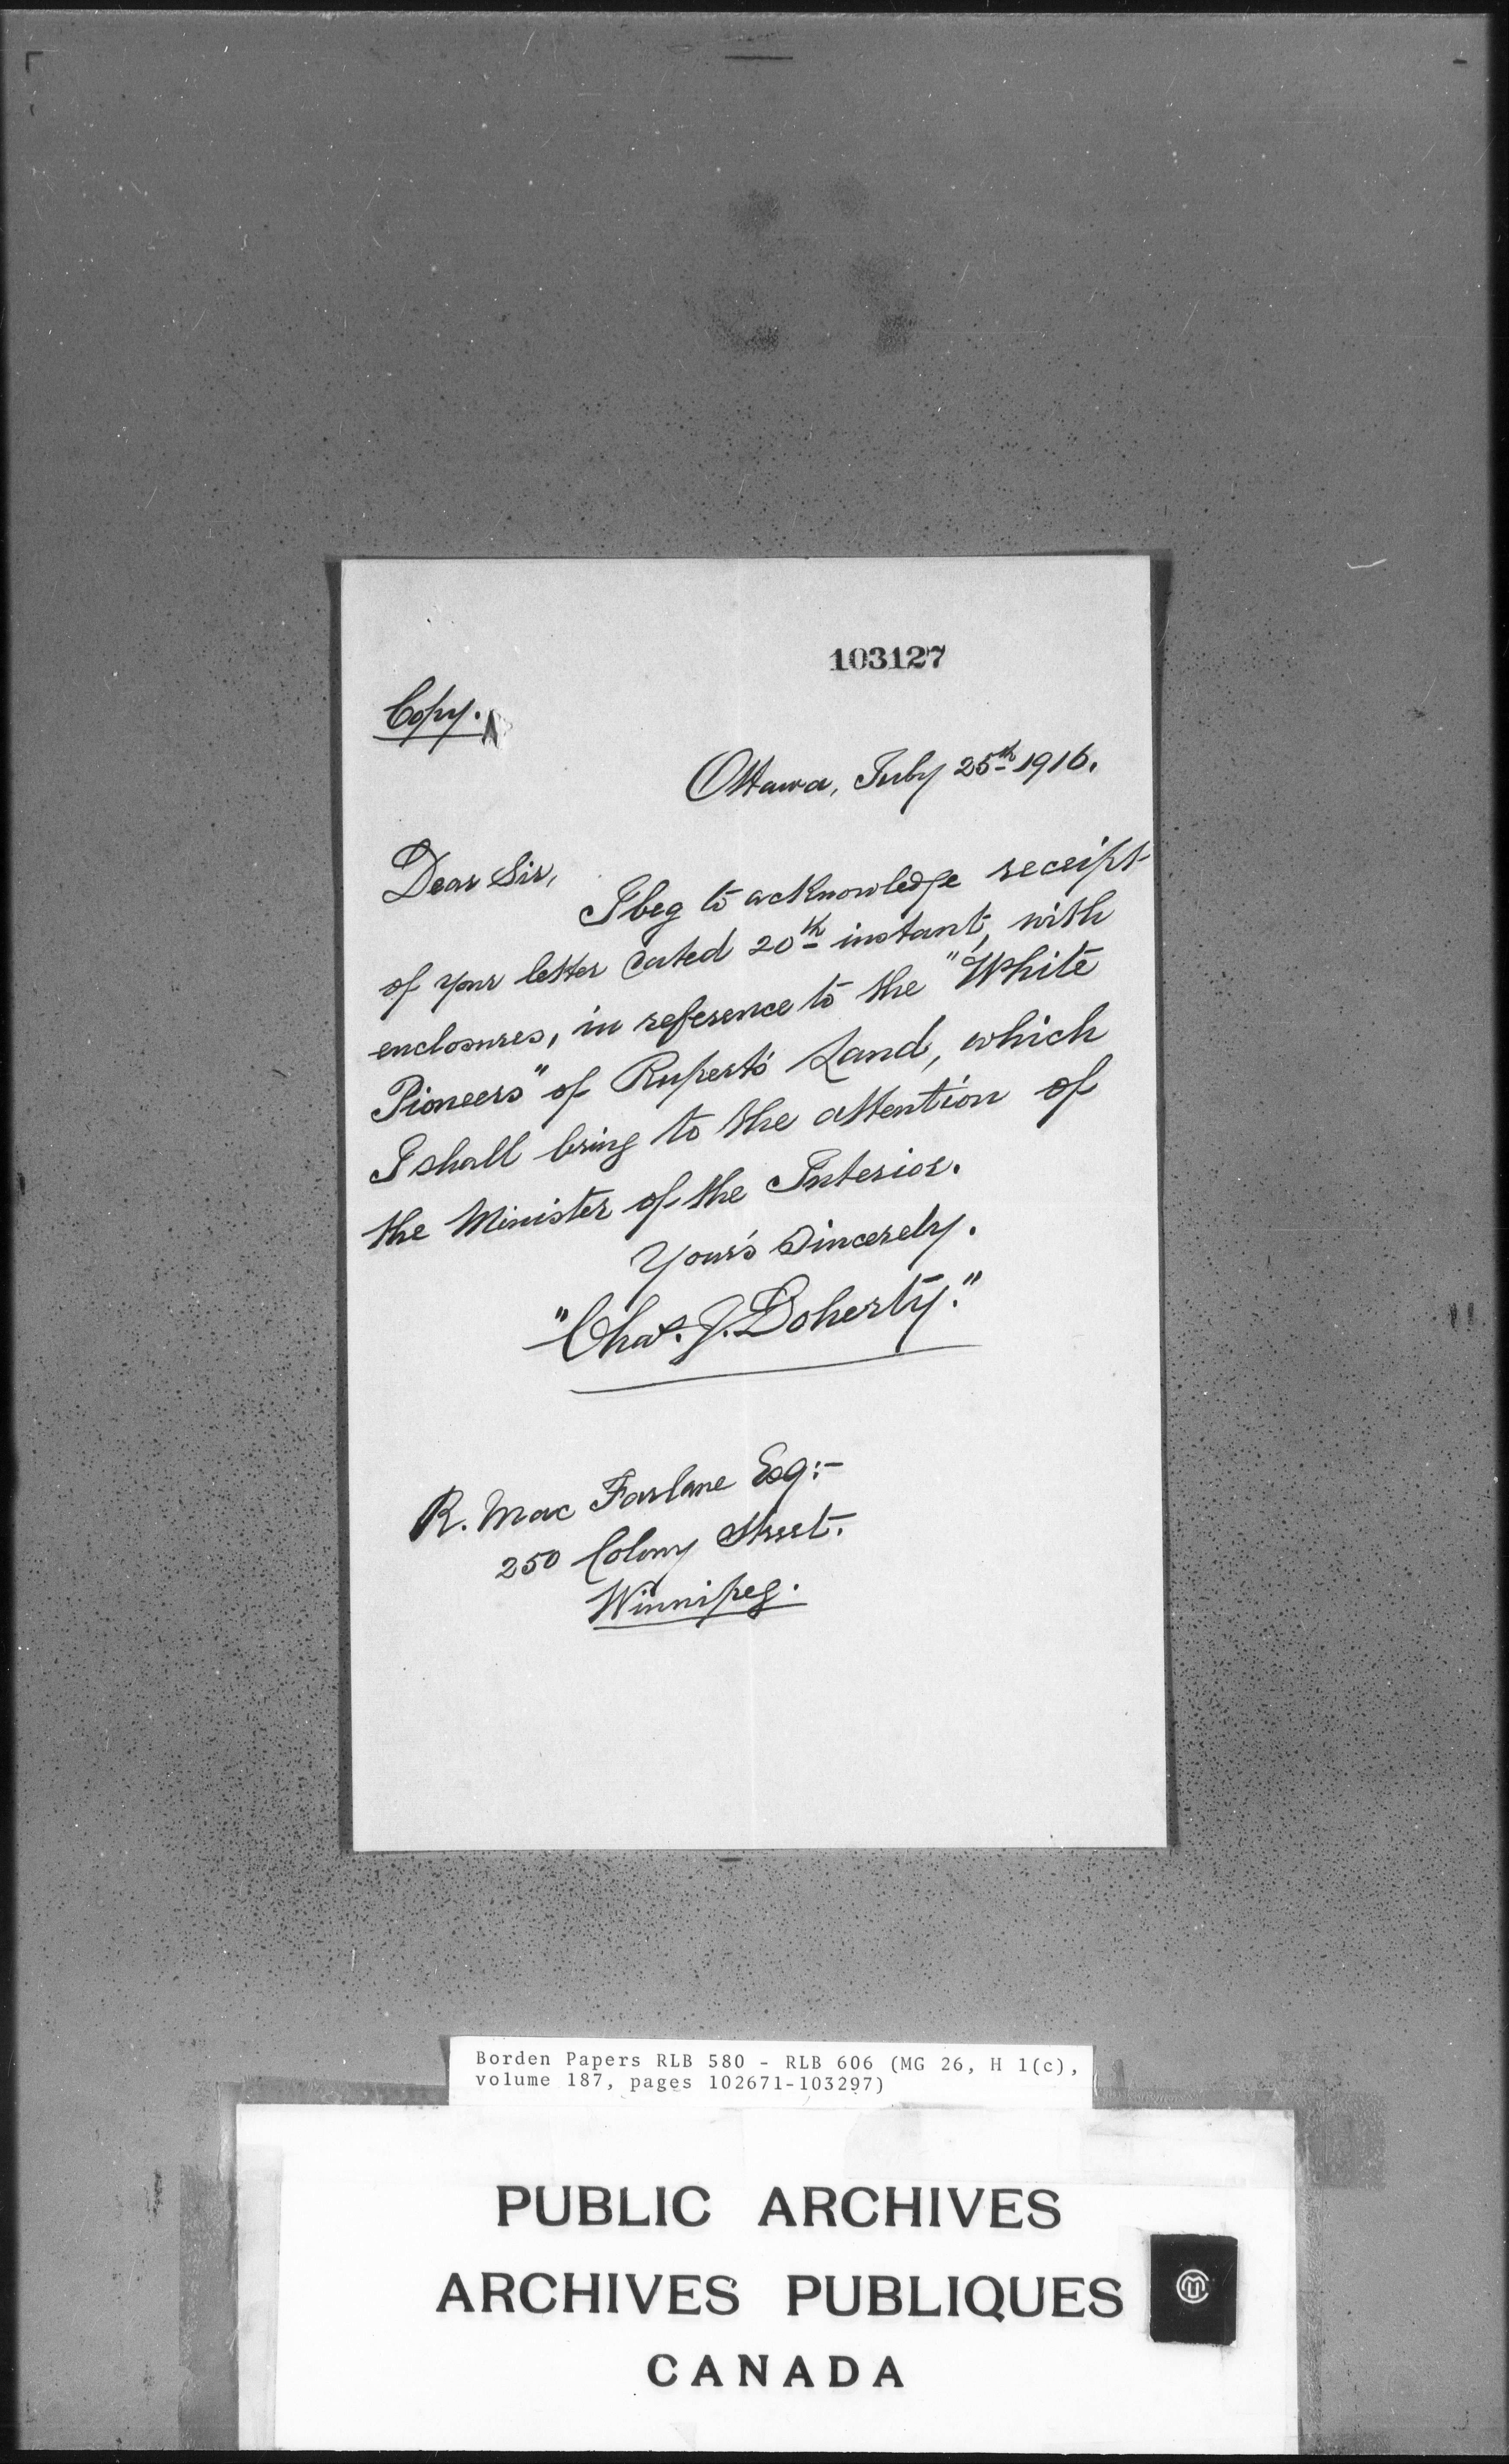 103127
Copy.
Ottawa, July 25th 1916.
Dear Sir,
I beg to acknowledge receipt
of your letter dated 20th instant, with
enclosures, in reference to the "White
Pioneers" of Rupert's Land, which
I shall bring to the attention of
the Minister of the Interior.
Your's Sincerely.
"Chas. J. Doherty."
R. Mac Farlane Esq:-
250 Colony Street.
Winnipeg.
Borden Papers RLB 580 - RLB 606 (MG 26, H 1(c),
volume 187, pages 102671-103297)
PUBLIC ARCHIVES
ARCHIVES PUBLIQUES
CANADA